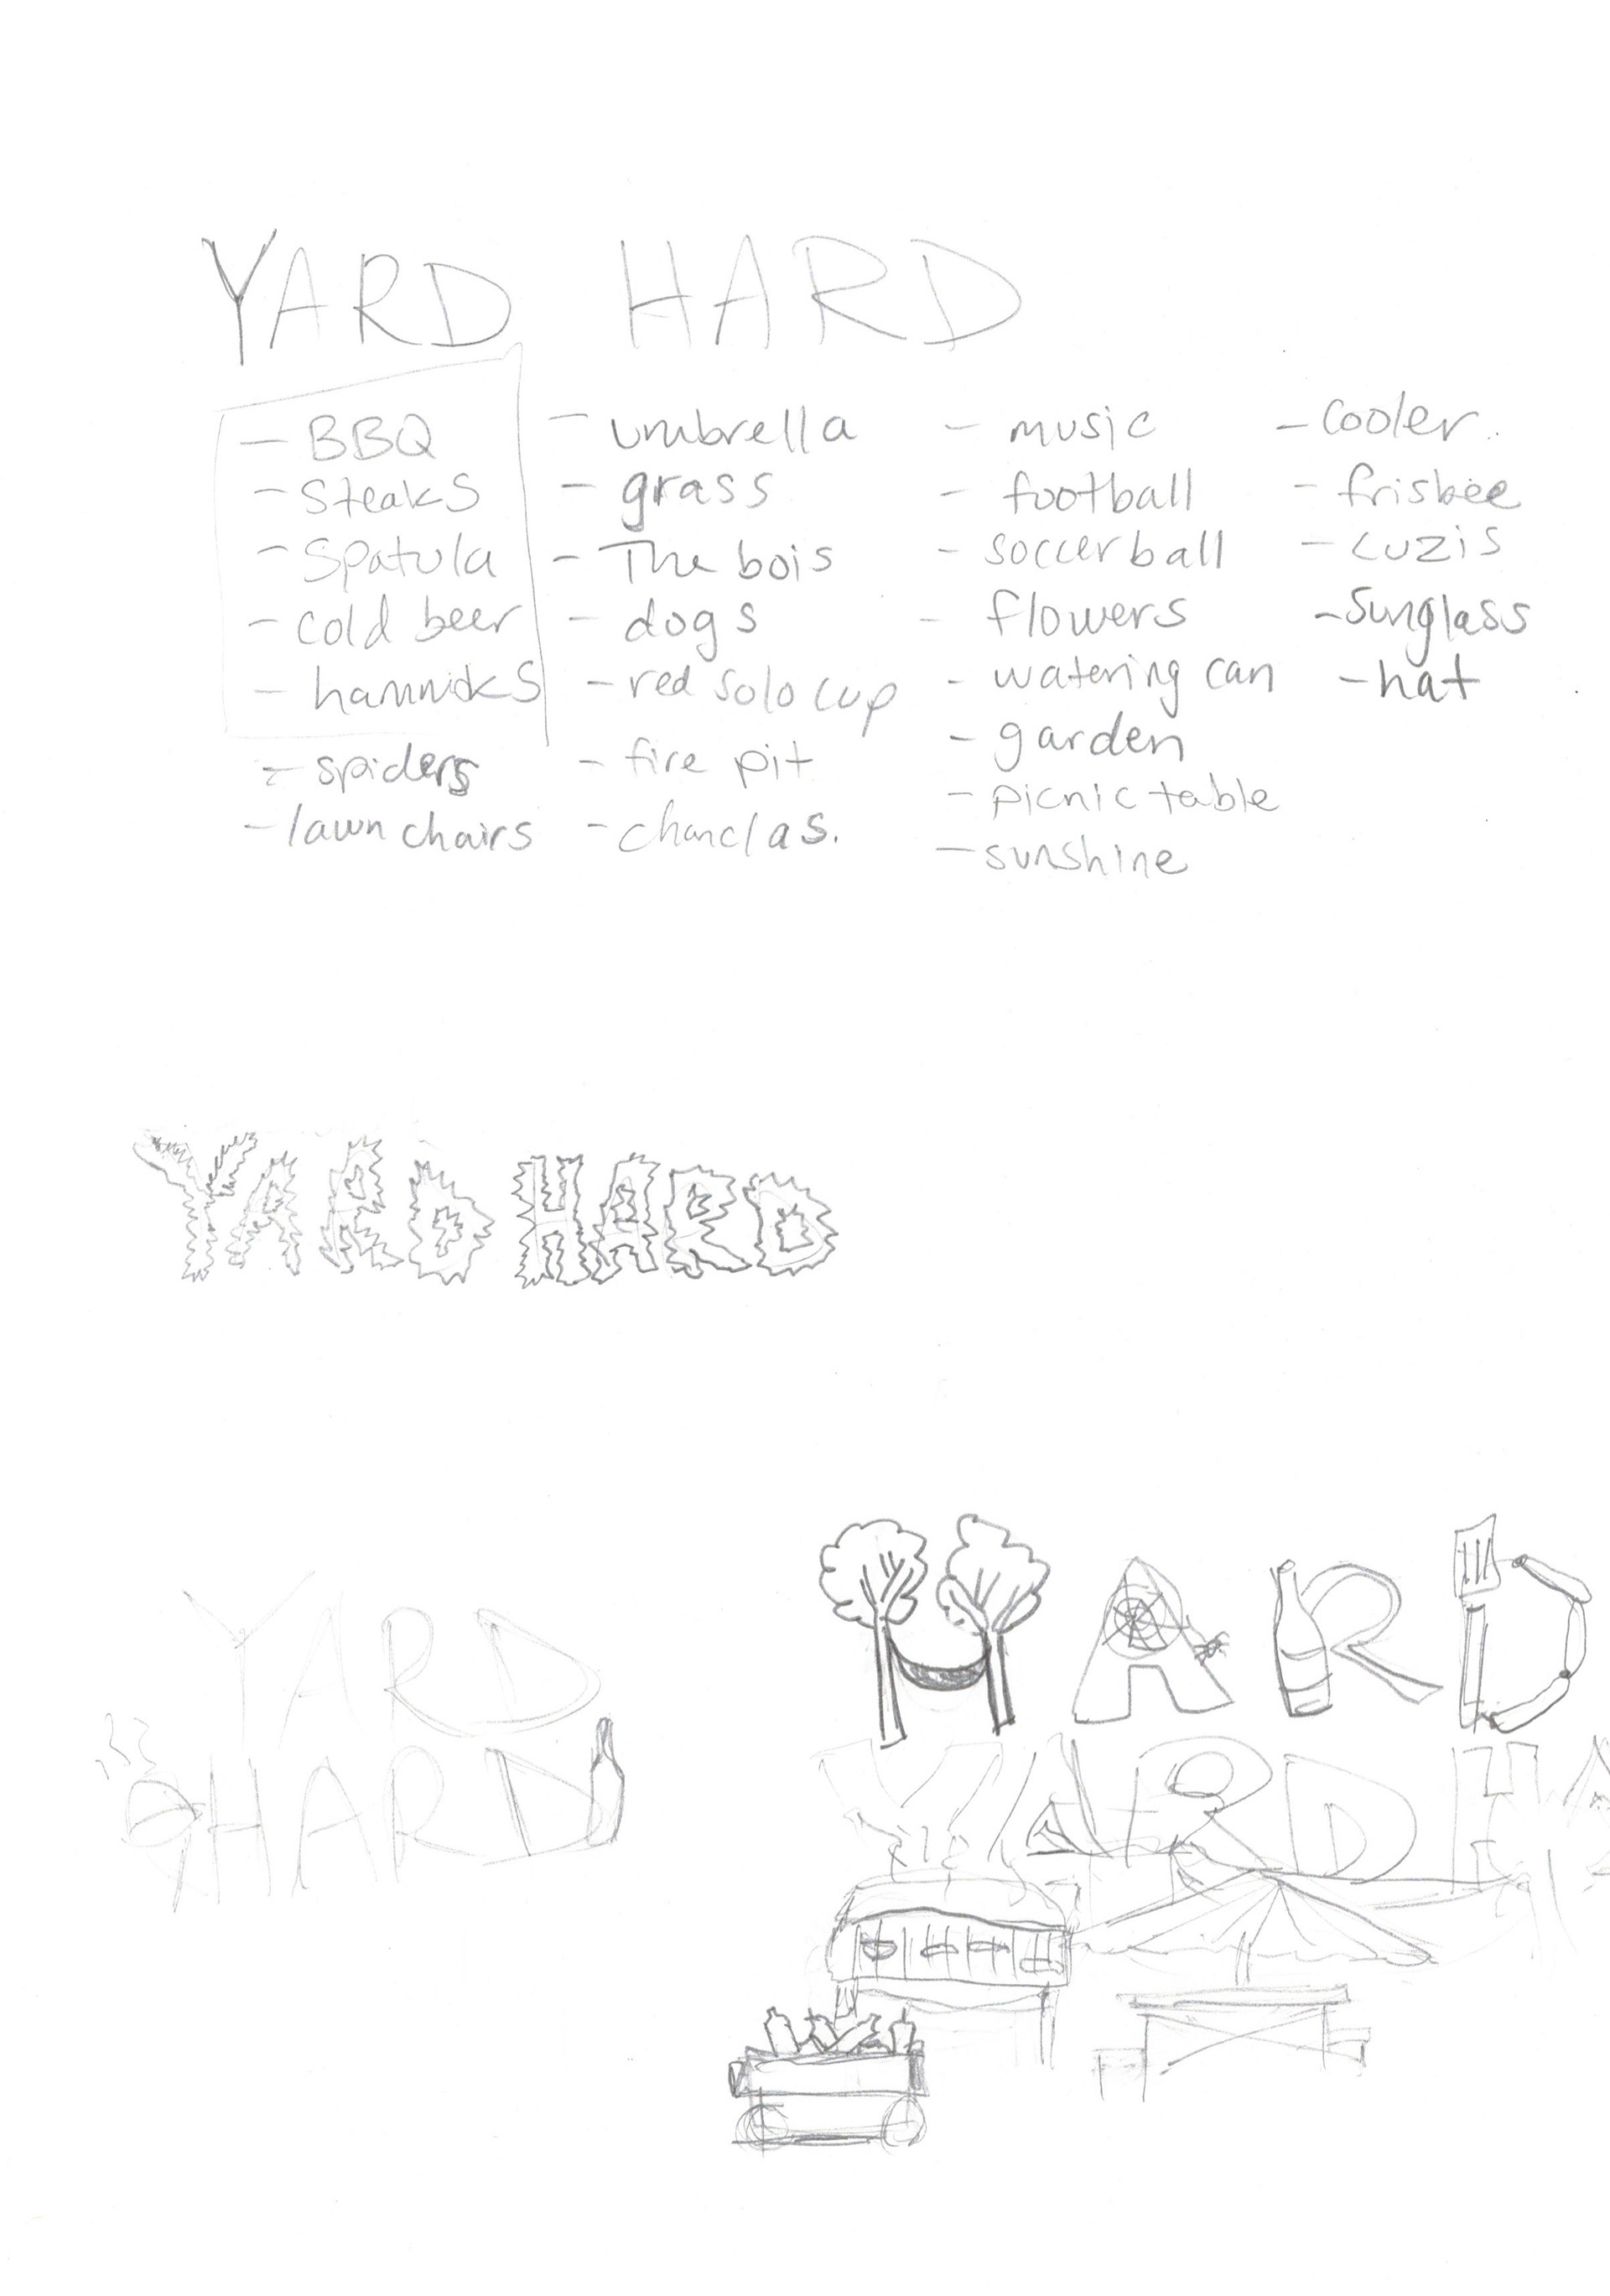 YARD HARD
- BBQ
- Steaks
- Spatula
- cold beer
- hammoks
- spiders
- lawn chairs
- umbrella
- grass
- The bois
- dogs
- red solo cup
- fire pit
- chanclas.
- music
- football
- soccerball
- flowers
- watering can
- garden
- picnic table
- sunshine
- cooler
- frisbee
- cuzis
- sunglass
- hat
YARD HARD
YARD
HARD
HARD
YARD HA